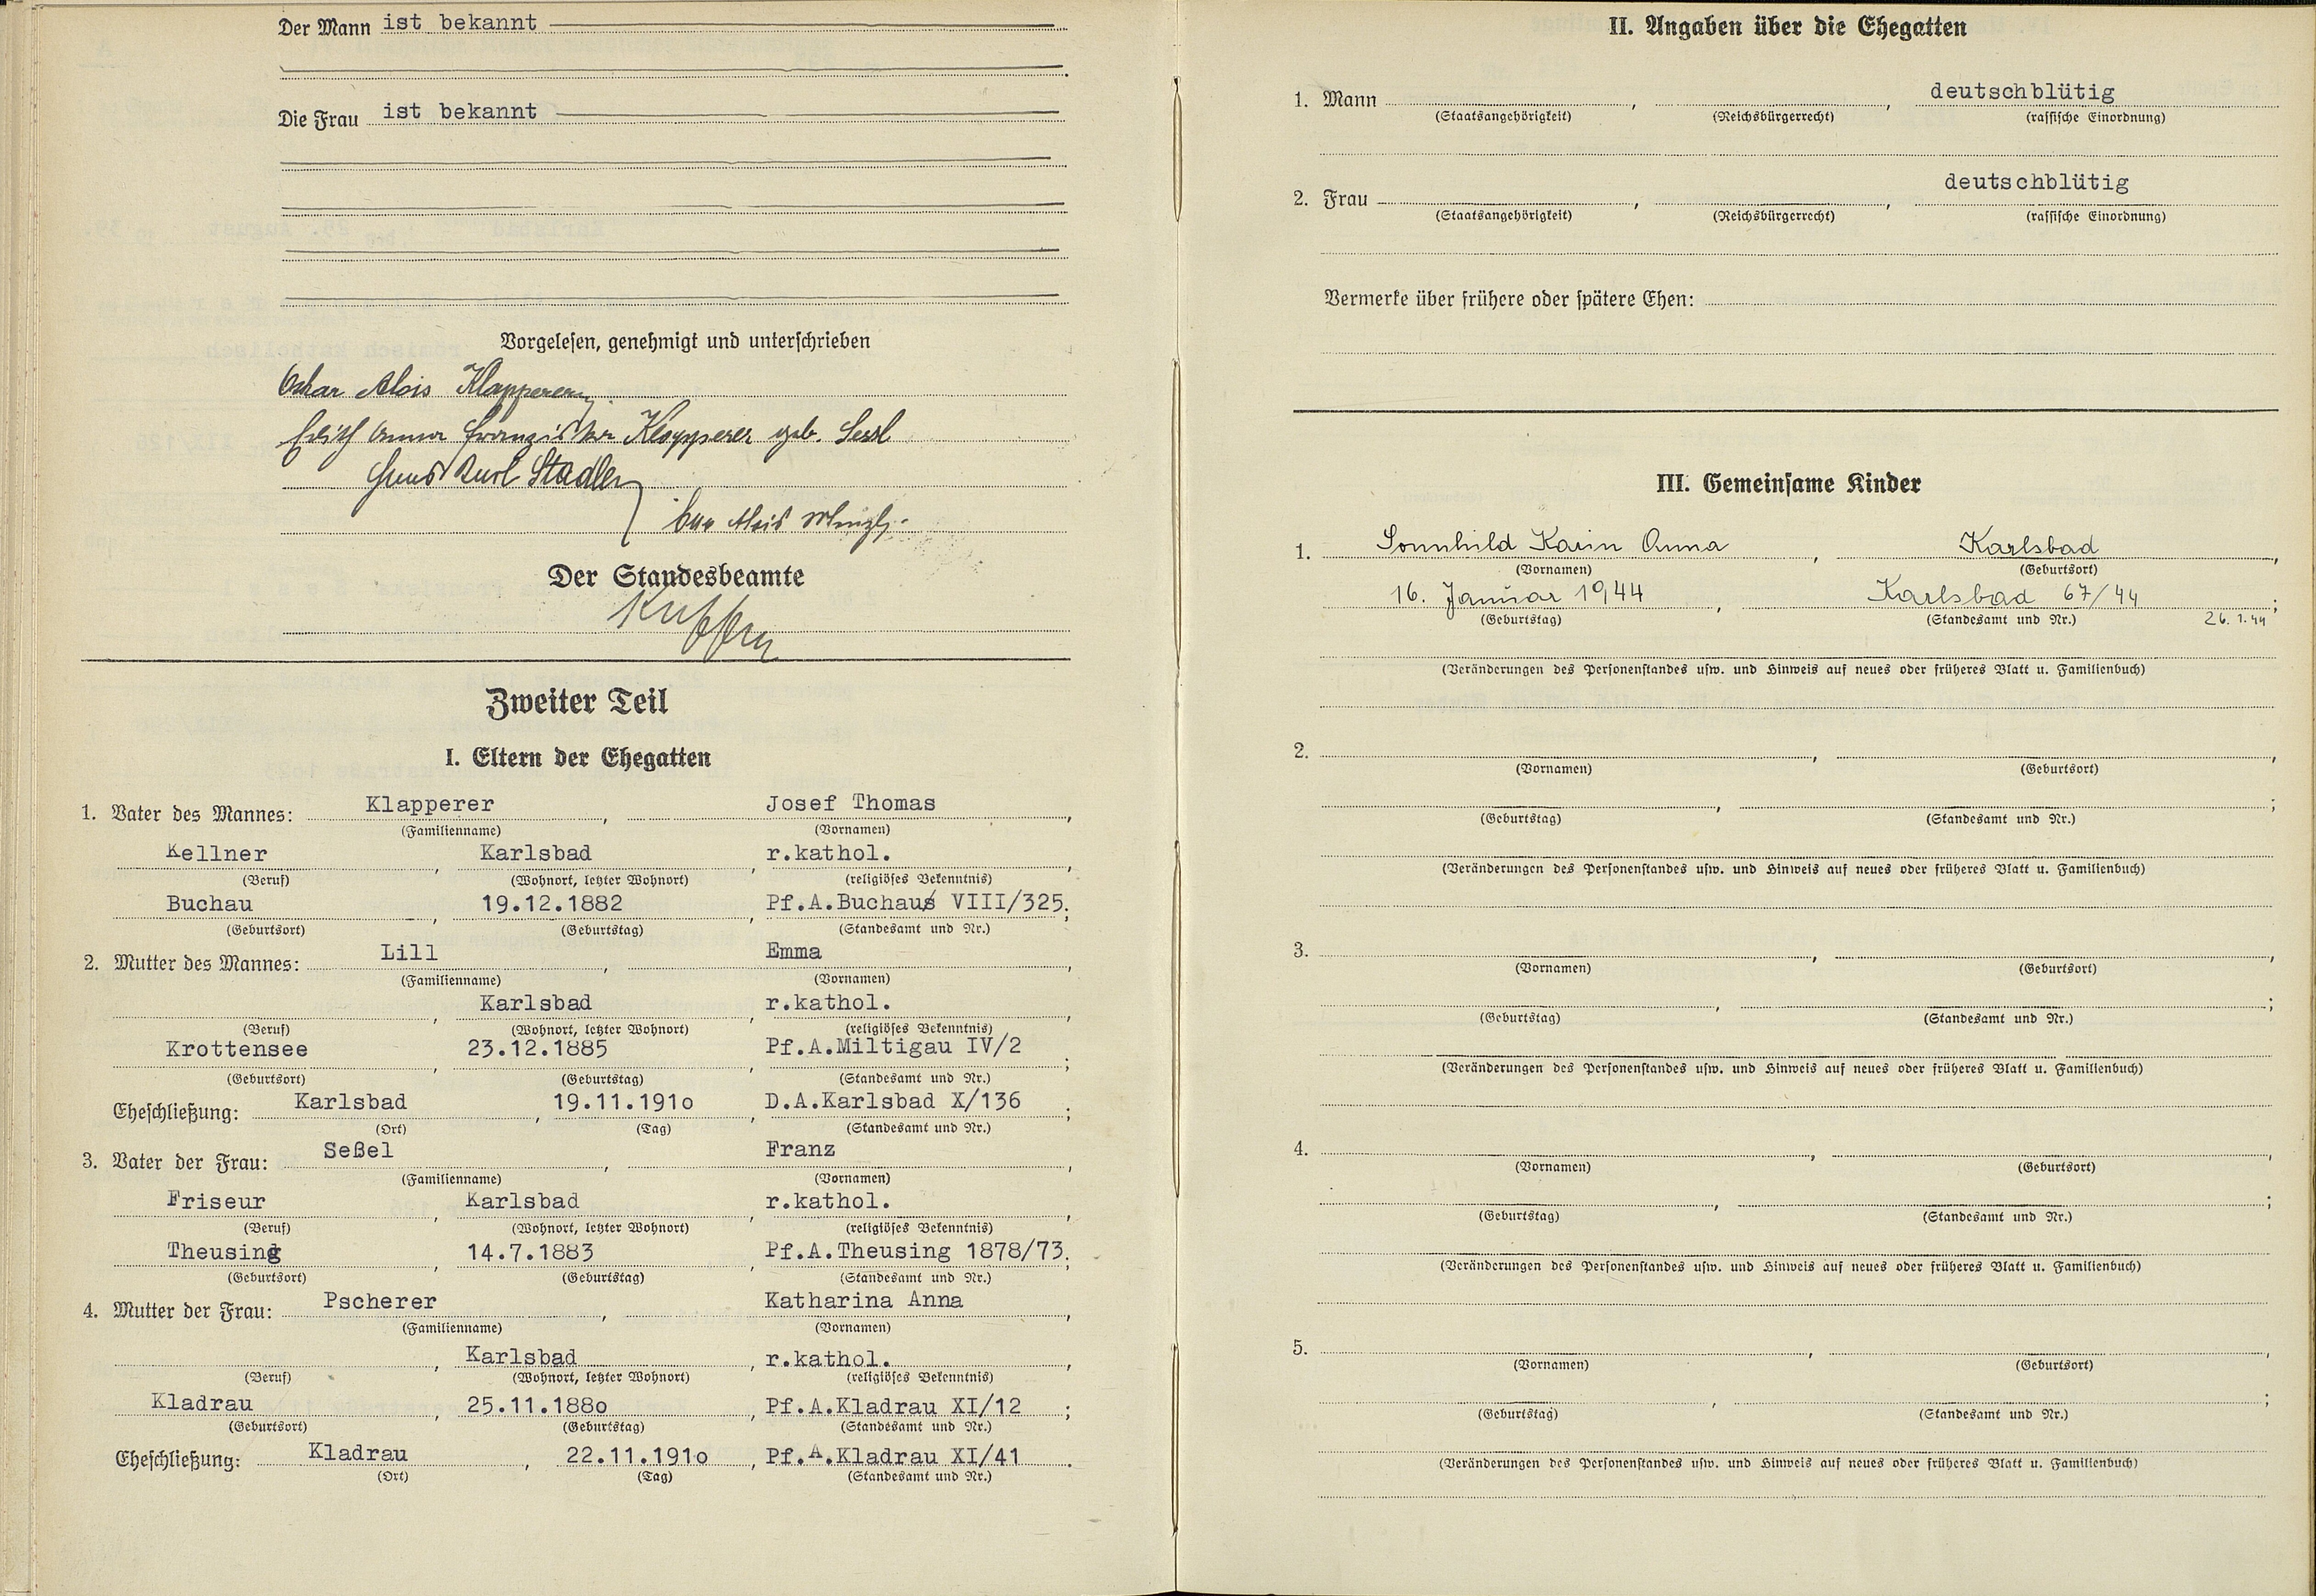 Der Mann ist bekannt
Die Frau ist bekannt
Vorgelesen, genehmigt und unterschrieben
Oskar Alois Klapperer
Edith Anna Franziska Klapperer geb. Sessl
Karl Stadler
Alois
Der Standesbeamte
Zweiter Teil
I. Eltern der Ehegatten
1. Vater des Mannes: Klapperer, Josef Thomas,
(Familienname) (Vornamen)
Kellner, Karlsbad, r.kathol.,
(Beruf) (Wohnort, letzter Wohnort) (religiöses Bekenntnis)
Buchau, 19.12.1882, Pf.A.Buchau VIII/325;
(Geburtsort) (Geburtstag) (Standesamt und Nr.)
2. Mutter des Mannes: Lill, Emma,
(Familienname) (Vornamen)
, Karlsbad, r.kathol.,
(Beruf) (Wohnort, letzter Wohnort) (religiöses Bekenntnis)
Krottensee, 23.12.1885, Pf.A.Miltigau IV/2;
(Geburtsort) (Geburtstag) (Standesamt und Nr.)
Eheschließung: Karlsbad, 19.11.191o, D.A.Karlsbad X/136;
(Ort) (Tag) (Standesamt und Nr.)
3. Vater der Frau: Seßel, Franz,
(Familienname) (Vornamen)
Friseur, Karlsbad, r.kathol.,
(Beruf) (Wohnort, letzter Wohnort) (religiöses Bekenntnis)
Theusing, 14.7.1883, Pf.A.Theusing 1878/73;
(Geburtsort) (Geburtstag) (Standesamt und Nr.)
4. Mutter der Frau: Pscherer, Katharina Anna,
(Familienname) (Vornamen)
, Karlsbad, r.kathol.,
(Beruf) (Wohnort, letzter Wohnort) (religiöses Bekenntnis)
Kladrau, 25.11.188o, Pf.A.Kladrau XI/12;
(Geburtsort) (Geburtstag) (Standesamt und Nr.)
Eheschließung: Kladrau, 22.11.191o, Pf.A.Kladrau XI/41.
(Ort) (Tag) (Standesamt und Nr.)
II. Angaben über die Ehegatten
1. Mann , , deutschblütig
(Staatsangehörigkeit) (Reichsbürgerrecht) (rassische Einordnung)
2. Frau , , deutschblütig
(Staatsangehörigkeit) (Reichsbürgerrecht) (rassische Einordnung)
Vermerke über frühere oder spätere Ehen:
III. Gemeinsame Kinder
1. Sonnhild Karin Anna, Karlsbad,
(Vornamen) (Geburtsort)
16. Januar 1944, Karlsbad 67/44;
(Geburtstag) (Standesamt und Nr.) 26.1.44
(Veränderungen des Personenstandes usw. und Hinweis auf neues oder früheres Blatt u. Familienbuch)
2. , ,
(Vornamen) (Geburtsort)
, ;
(Geburtstag) (Standesamt und Nr.)
(Veränderungen des Personenstandes usw. und Hinweis auf neues oder früheres Blatt u. Familienbuch)
3. , ,
(Vornamen) (Geburtsort)
, ;
(Geburtstag) (Standesamt und Nr.)
(Veränderungen des Personenstandes usw. und Hinweis auf neues oder früheres Blatt u. Familienbuch)
4. , ,
(Vornamen) (Geburtsort)
, ;
(Geburtstag) (Standesamt und Nr.)
(Veränderungen des Personenstandes usw. und Hinweis auf neues oder früheres Blatt u. Familienbuch)
5. , ,
(Vornamen) (Geburtsort)
, ;
(Geburtstag) (Standesamt und Nr.)
(Veränderungen des Personenstandes usw. und Hinweis auf neues oder früheres Blatt u. Familienbuch)